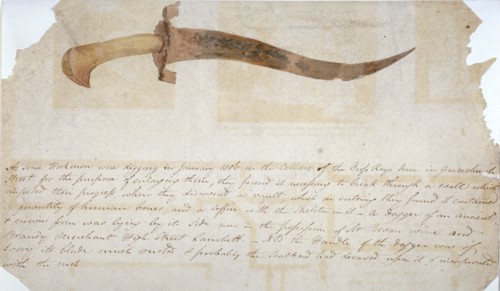 As some Workmen were digging in January 1806 in the Cellars of the Cross Keys Inn in Gracechurch
Street for the purpose of enlarging them, they found it necessary to break through a wall which
impeded their progress when they discovered a vault, which on entering they found it contained
a quantity of human bones, and a Coffin with the Skeleton in it - A dagger of an ancient
& curious form was lying by its side now in the possession of Mr Bevan wine and
Brandy Merchant High Street Lambeth - NB the Handle of the dagger was of
Ivory its blade much oxided & probably the Scabbard had decayed upon it & incorporated
with the rust